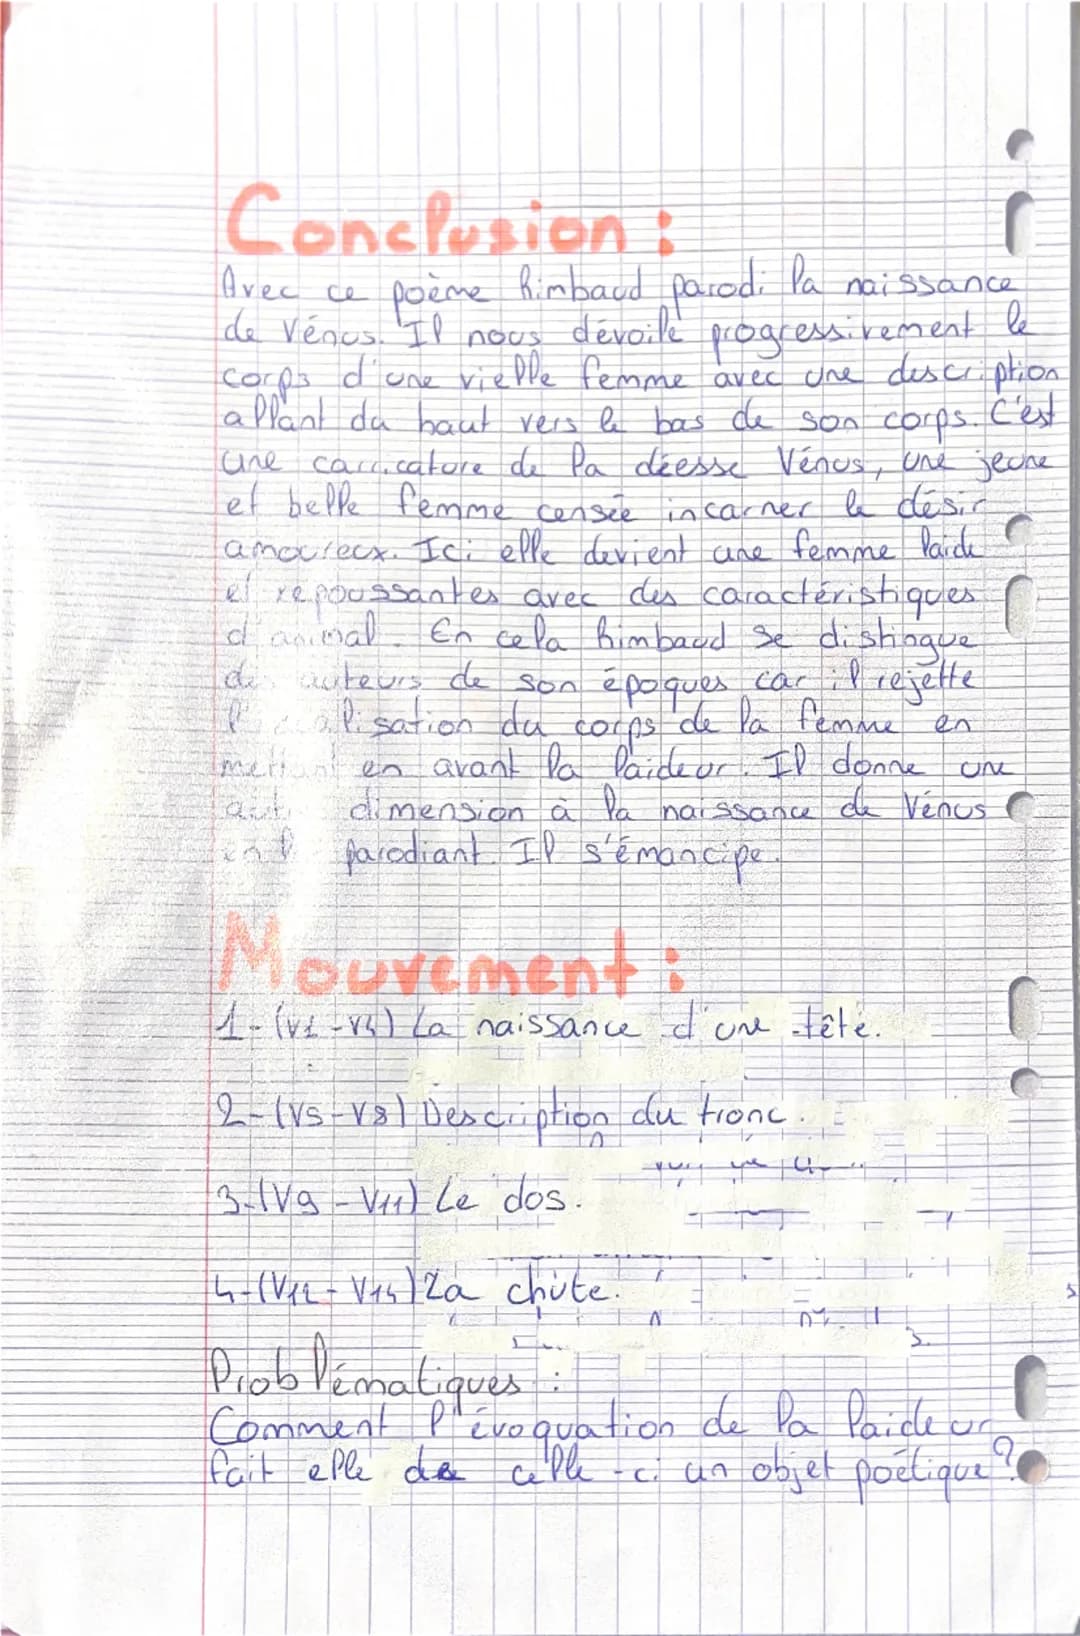 Conclusion :
Avec ce poème Rimbaud parodi la naissance
de Vénus. Il nous dévoile progressivement le
corps d'une vielle femme avec une description
allant du haut vers le bas de son corps. C'est
une carricature de la déesse Vénus, une jeune
et belle femme censée incarner le désir
amoureux. Ici elle devient une femme laide
et repoussantes avec des caractéristiques
d'animal. En cela Rimbaud se distingue
des auteurs de son époques car il rejette
l'idéalisation du corps de la femme en
mettant en avant la laideur. Il donne une
dimension à la naissance de Vénus
parodiant. Il s'émancipe.
Mouvement :
1-(V1-V4) La naissance d'une tête.
2-(V5-V8) Description du tronc.
3-(V9-V11) Le dos.
4-(V12-V14) La chute.
Problématiques :
Comment l'évoquation de la laideur
fait elle de celle-ci un objet poétique ?